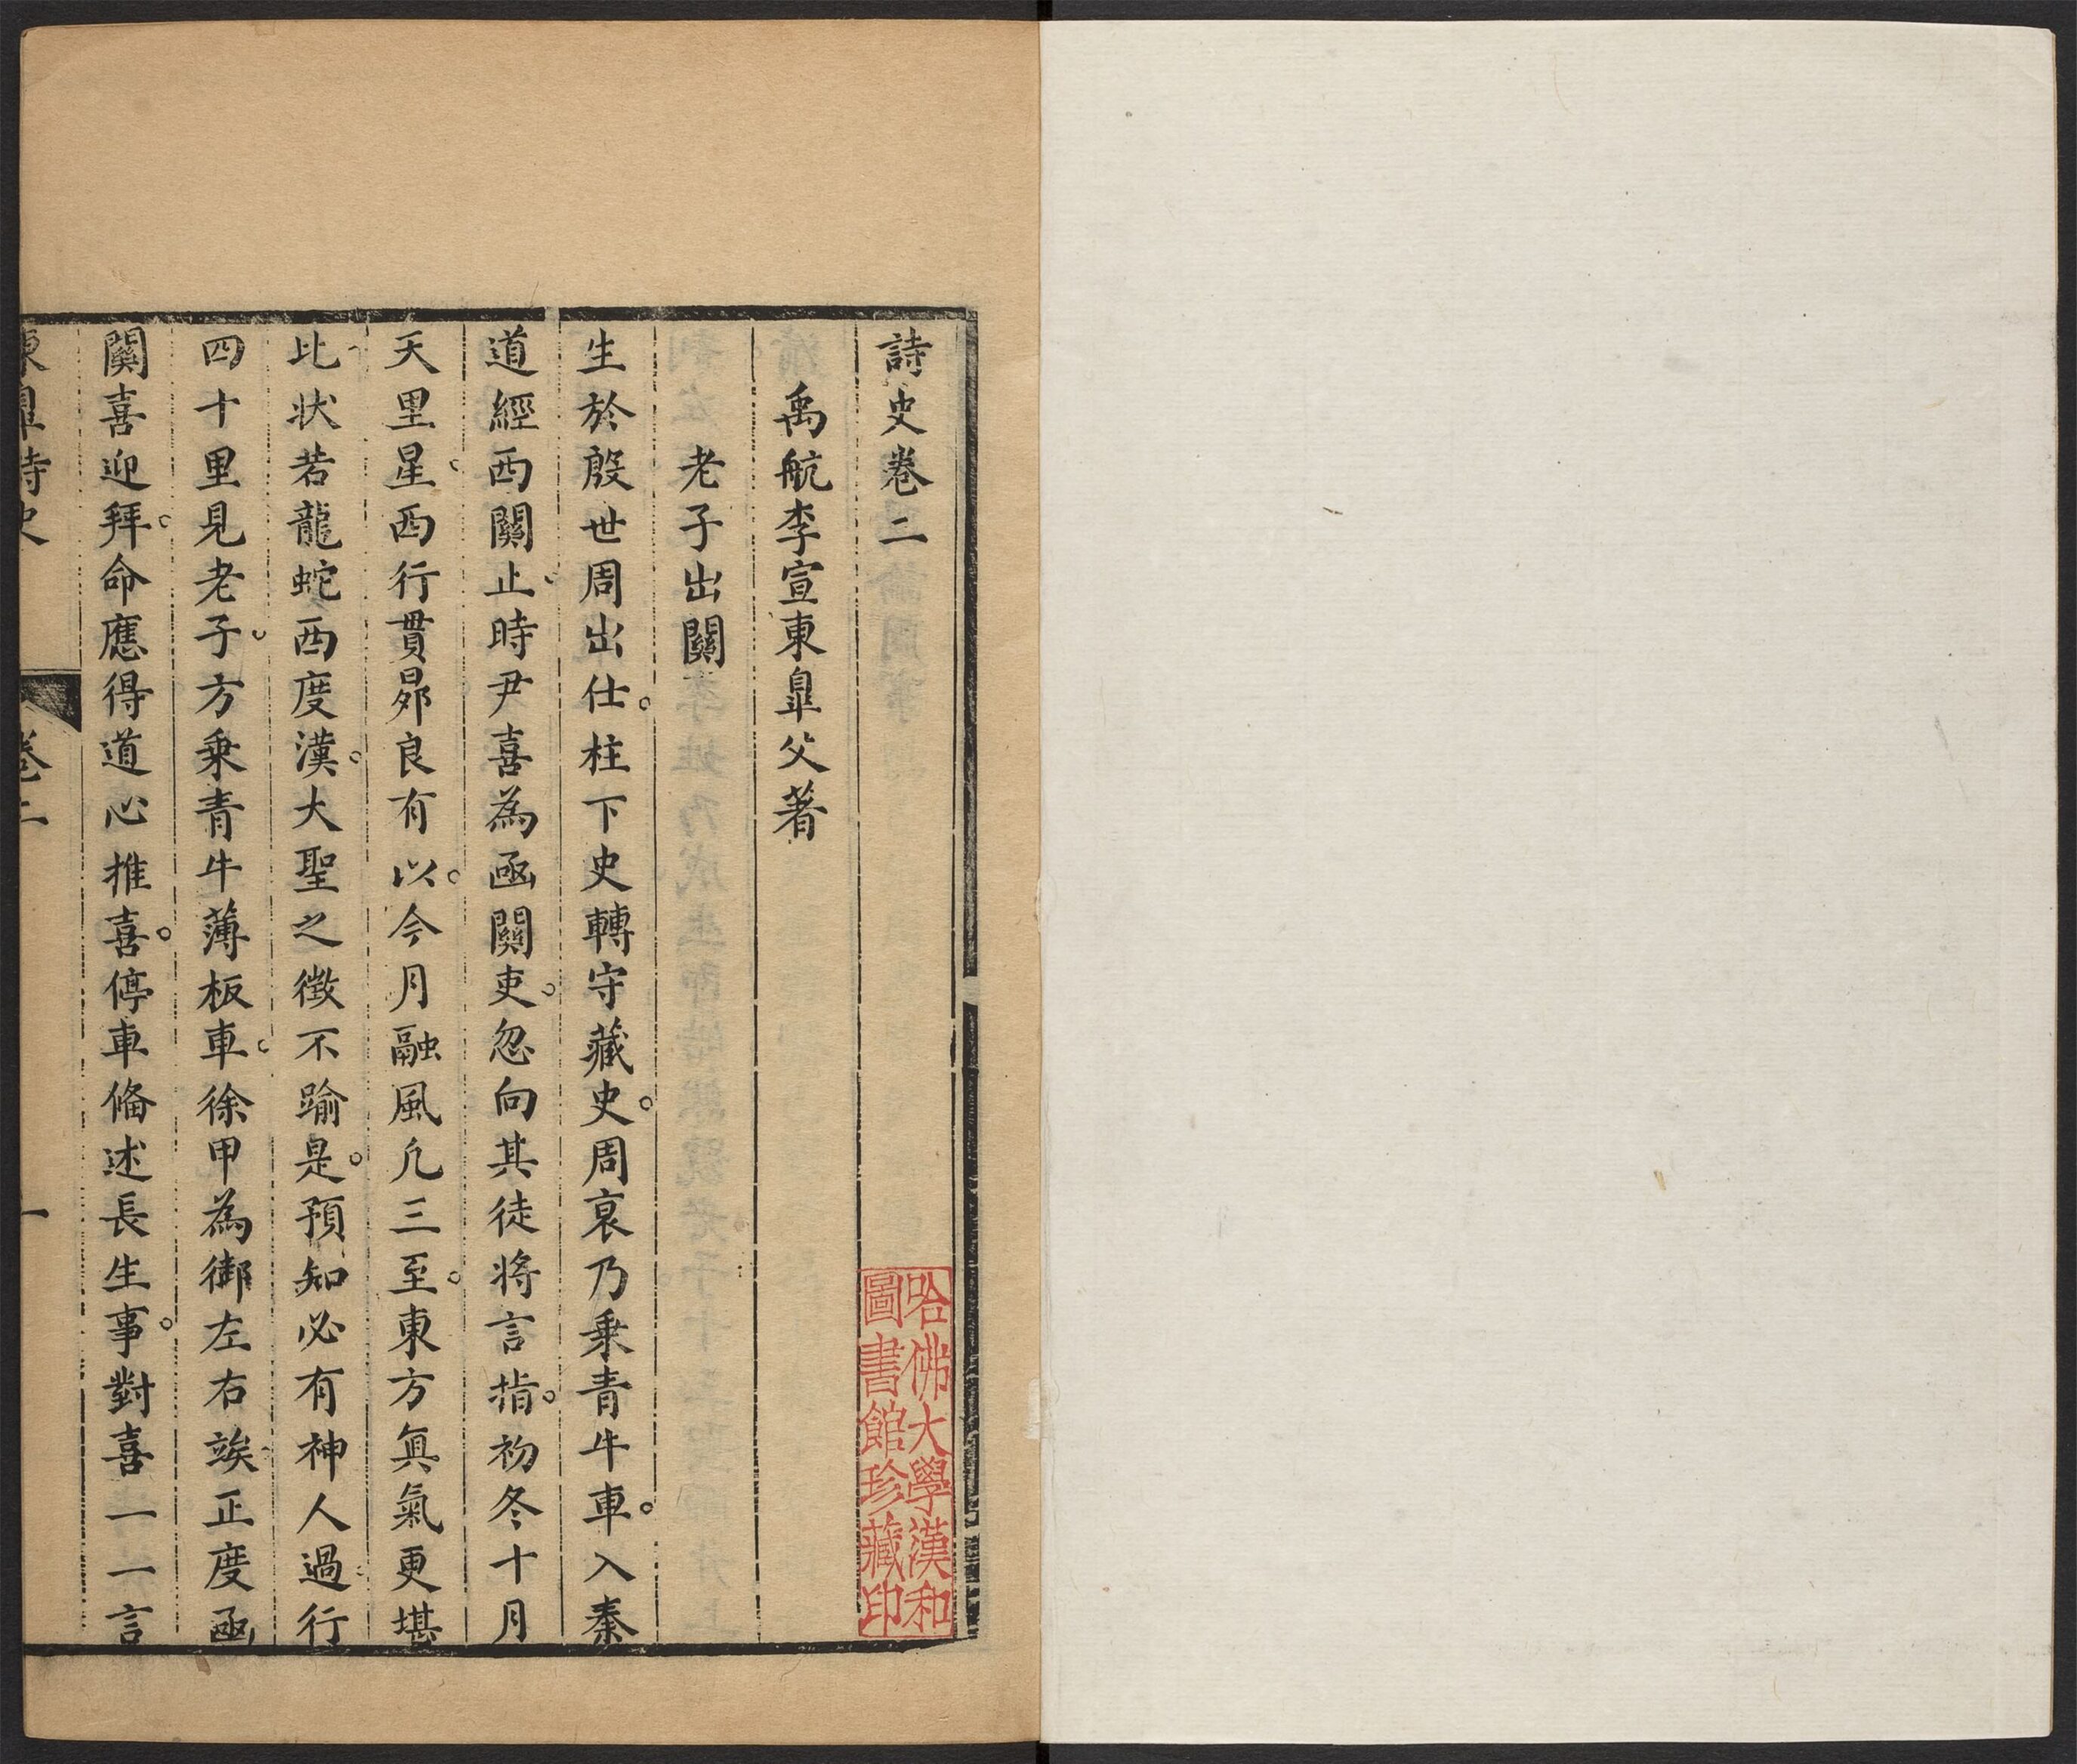 詩史卷二
禹航李宣東臯父著
老子出關
生於殷世周出仕。柱下史轉守藏史。周衰乃乗青牛車。入秦
道經西關止。時尹喜為函關吏。忽向其徒將言指。初冬十月
天里星。西行貫昴良有以。今月融風凢三至。東方眞氣更堪
比。状若龍蛇西度漢。大聖之徴不踰是。預知必有神人過。行
四十里見老子。方乗青牛薄板車。徐甲為御左右竢。正度函
關喜迎拜。命應得道心推喜。停車偹述長生事。對喜一一言
東臯詩史
卷二
一
哈佛大學漢和
圖書館珍藏印